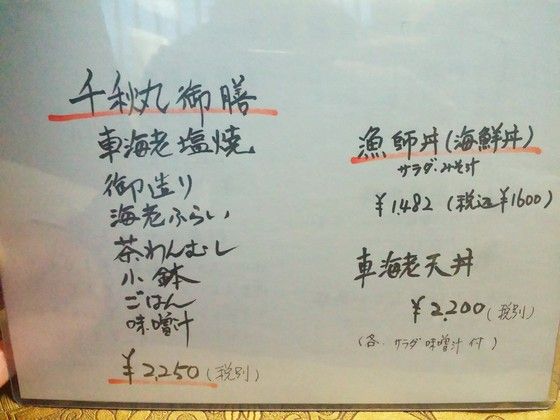 千秋丸御膳
車海老塩焼
御造り
海老ふらい
茶わんむし
小鉢
ごはん
味噌汁
¥2,250(税別)
漁師丼(海鮮丼)
サラダ・みそ汁
¥1,482(税込¥1600)
車海老天丼
¥2,200(税別)
(各、サラダ味噌汁付)